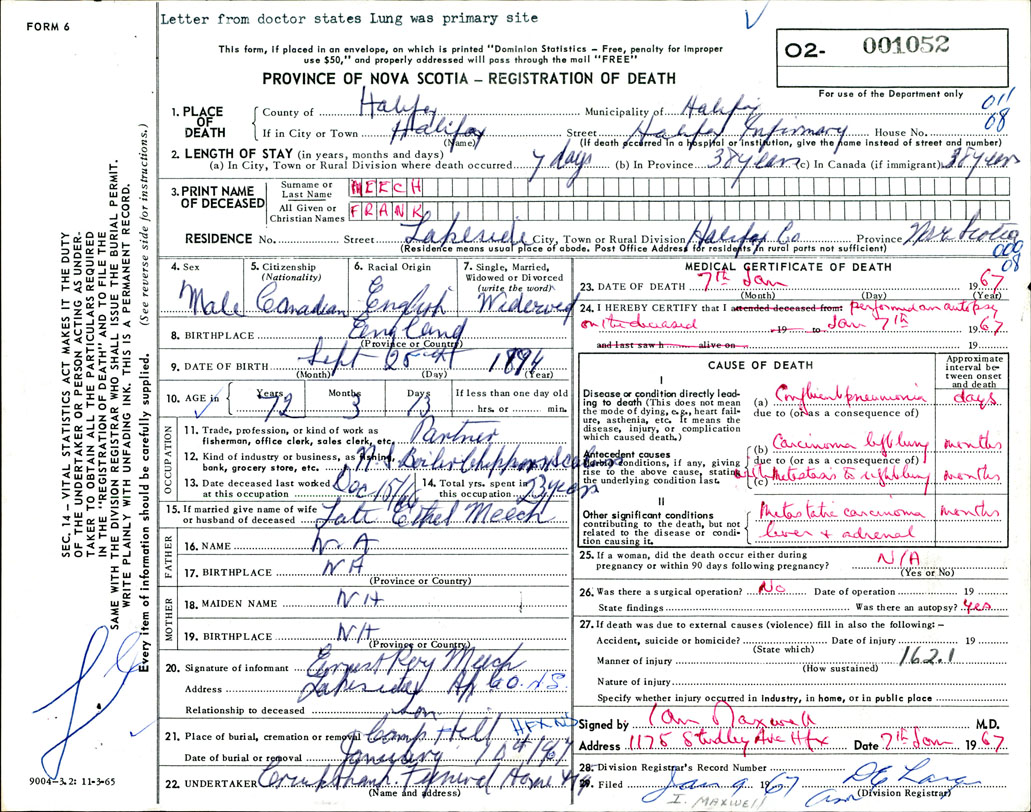 FORM 6
Letter from doctor states Lung was primary site
This form, if placed in an envelope, on which is printed "Dominion Statistics – Free, penalty for improper
use $50," and properly addressed will pass through the mail "FREE"
PROVINCE OF NOVA SCOTIA – REGISTRATION OF DEATH
O2- 001052
For use of the Department only
011
08
1. PLACE OF DEATH
County of Halifax Municipality of Halifax
If in City or Town Halifax Street Halifax Infirmary House No.
(Name) (If death occurred in a hospital or institution, give the name instead of street and number)
2. LENGTH OF STAY (in years, months and days)
(a) In City, Town or Rural Division where death occurred 7 days (b) In Province 38 years (c) In Canada (if immigrant) 38 years
3. PRINT NAME OF DECEASED
Surname or Last Name MEECH
All Given or Christian Names FRANK
RESIDENCE No. Street Lakeside City, Town or Rural Division Halifax Co Province Nova Scotia
(Residence means usual place of abode. Post Office Address for residents in rural parts not sufficient)
009
08
4. Sex Male
5. Citizenship (Nationality) Canadian
6. Racial Origin English
7. Single, Married, Widowed or Divorced (write the word) Widowed
8. BIRTHPLACE England
(Province or Country)
9. DATE OF BIRTH Sept 25th 1894
(Month) (Day) (Year)
10. AGE in Years 72 Months 3 Days 13 If less than one day old hrs. or min.
OCCUPATION
11. Trade, profession, or kind of work as fisherman, office clerk, sales clerk, etc. Partner
12. Kind of industry or business, as fishing, bank, grocery store, etc. N.S. Boiler Chippers
13. Date deceased last worked at this occupation Dec 15/66
14. Total yrs. spent in this occupation 23 years
15. If married give name of wife or husband of deceased Late Ethel Meech
FATHER
16. NAME N. A
17. BIRTHPLACE N A
(Province or Country)
MOTHER
18. MAIDEN NAME N A
19. BIRTHPLACE N A
(Province or Country)
20. Signature of informant Ernest Roy Meech
Address Lakeside, Hfx Co. N.S.
Relationship to deceased Son
21. Place of burial, cremation or removal Camp Hill HFX NS
Date of burial or removal January 10th 1967
22. UNDERTAKER Cruikshank Funeral Home Hfx
(Name and address)
MEDICAL CERTIFICATE OF DEATH
23. DATE OF DEATH 7th Jan 1967
(Month) (Day) (Year)
24. I HEREBY CERTIFY that I attended deceased from: performed an autopsy
on the deceased 19 to Jan 7th 1967
and last saw h alive on 19
CAUSE OF DEATH
Approximate interval between onset and death
I
Disease or condition directly leading to death (This does not mean the mode of dying, e.g., heart failure, asthenia, etc. It means the disease, injury, or complication which caused death.)
(a) Confluent pneumonia days
due to (or as a consequence of)
Antecedent causes
Morbid conditions, if any, giving rise to the above cause, stating the underlying condition last.
(b) Carcinoma left lung months
due to (or as a consequence of)
(c) with Metastasis to right lung months
II
Other significant conditions contributing to the death, but not related to the disease or condition causing it.
Metastatic carcinoma months
liver + adrenal
25. If a woman, did the death occur either during
pregnancy or within 90 days following pregnancy? N/A
(Yes or No)
26. Was there a surgical operation? No Date of operation 19
State findings Was there an autopsy? Yes
27. If death was due to external causes (violence) fill in also the following: –
Accident, suicide or homicide? Date of injury 19
(State which)
Manner of injury 162.1
(How sustained)
Nature of injury
Specify whether injury occurred in industry, in home, or in public place
Signed by Ian Maxwell M.D.
Address 1175 Studley Ave Hfx Date 7th Jan 1967
28. Division Registrar's Record Number
29. Filed Jan 9 1967
(Division Registrar)
I. MAXWELL
SEC. 14 – VITAL STATISTICS ACT MAKES IT THE DUTY
OF THE UNDERTAKER OR PERSON ACTING AS UNDER-
TAKER TO OBTAIN ALL THE PARTICULARS REQUIRED
IN THE "REGISTRATION OF DEATH" AND TO FILE THE
SAME WITH THE DIVISION REGISTRAR WHO SHALL ISSUE THE BURIAL PERMIT.
WRITE PLAINLY WITH UNFADING INK. THIS IS A PERMANENT RECORD.
Every item of information should be carefully supplied. (See reverse side for instructions.)
9004-3.2: 11-3-65